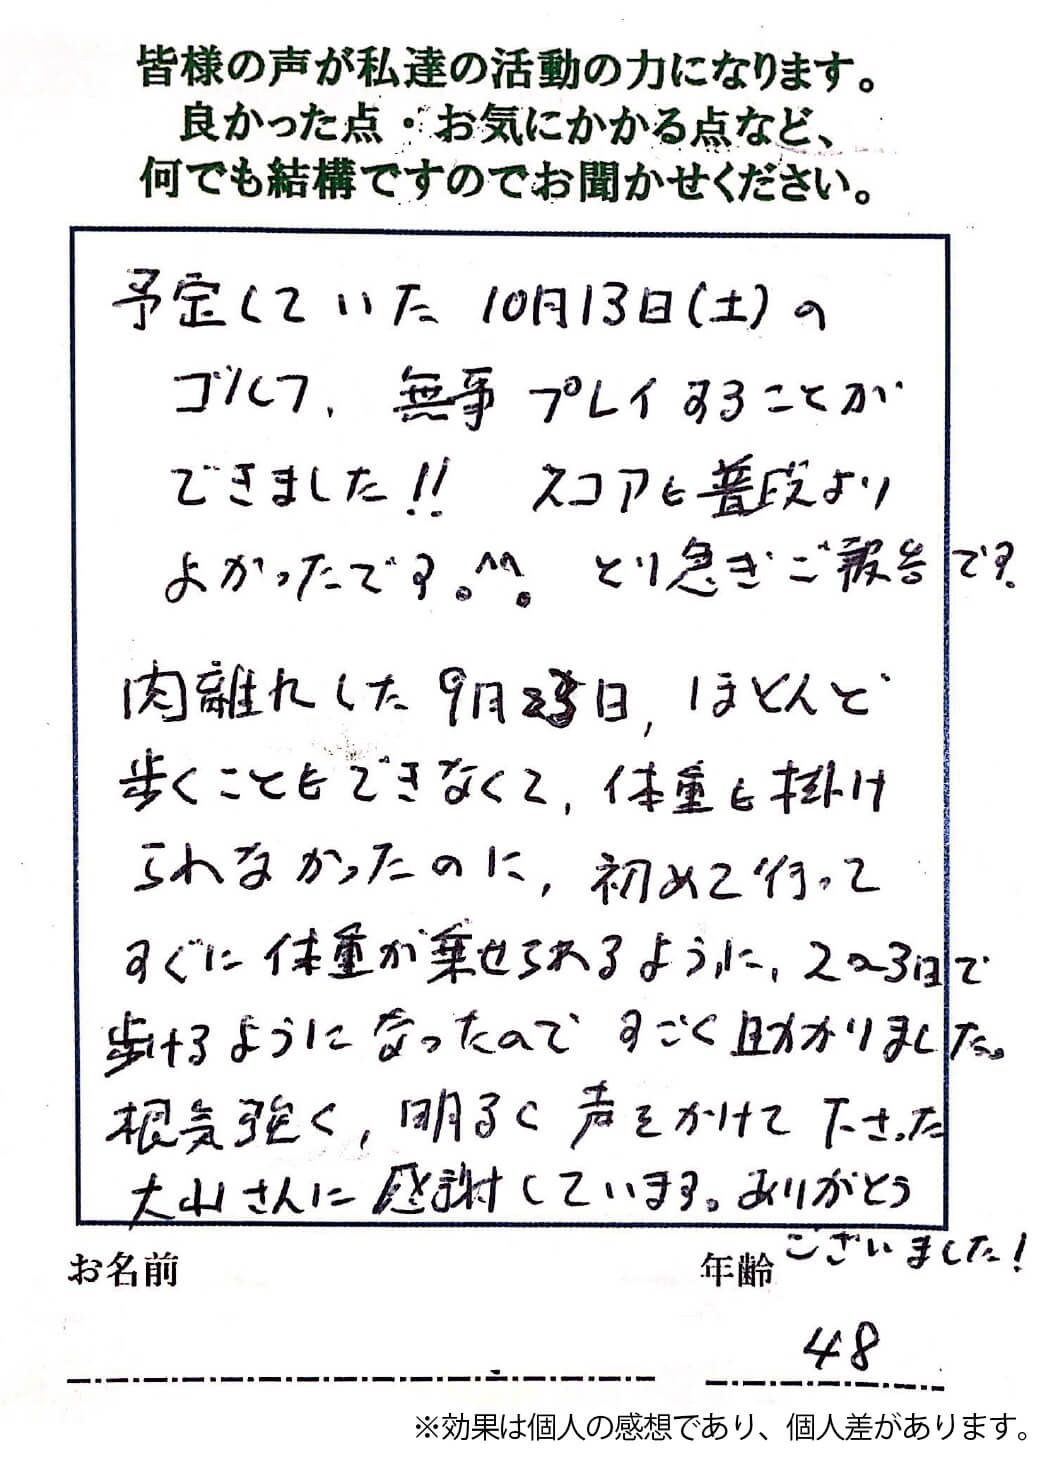 皆様の声が私達の活動の力になります。
良かった点・お気にかかる点など、
何でも結構ですのでお聞かせください。
予定していた 10月13日(土)の
ゴルフ、無事プレイすることが
できました!! スコアも普段より
よかったです。^^。とり急ぎご報告です。
肉離れした9月日, ほとんど
歩くこともできなくて, 体重も掛け
られなかったのに, 初めて行って
すぐに体重が乗せられるように, 2〜3日で
歩けるようになったので すごく助かりました。
根気強く, 明るく声をかけて下さった
大山さんに感謝しています。ありがとう
ございました!
お名前
年齢
48
※効果は個人の感想であり、個人差があります。